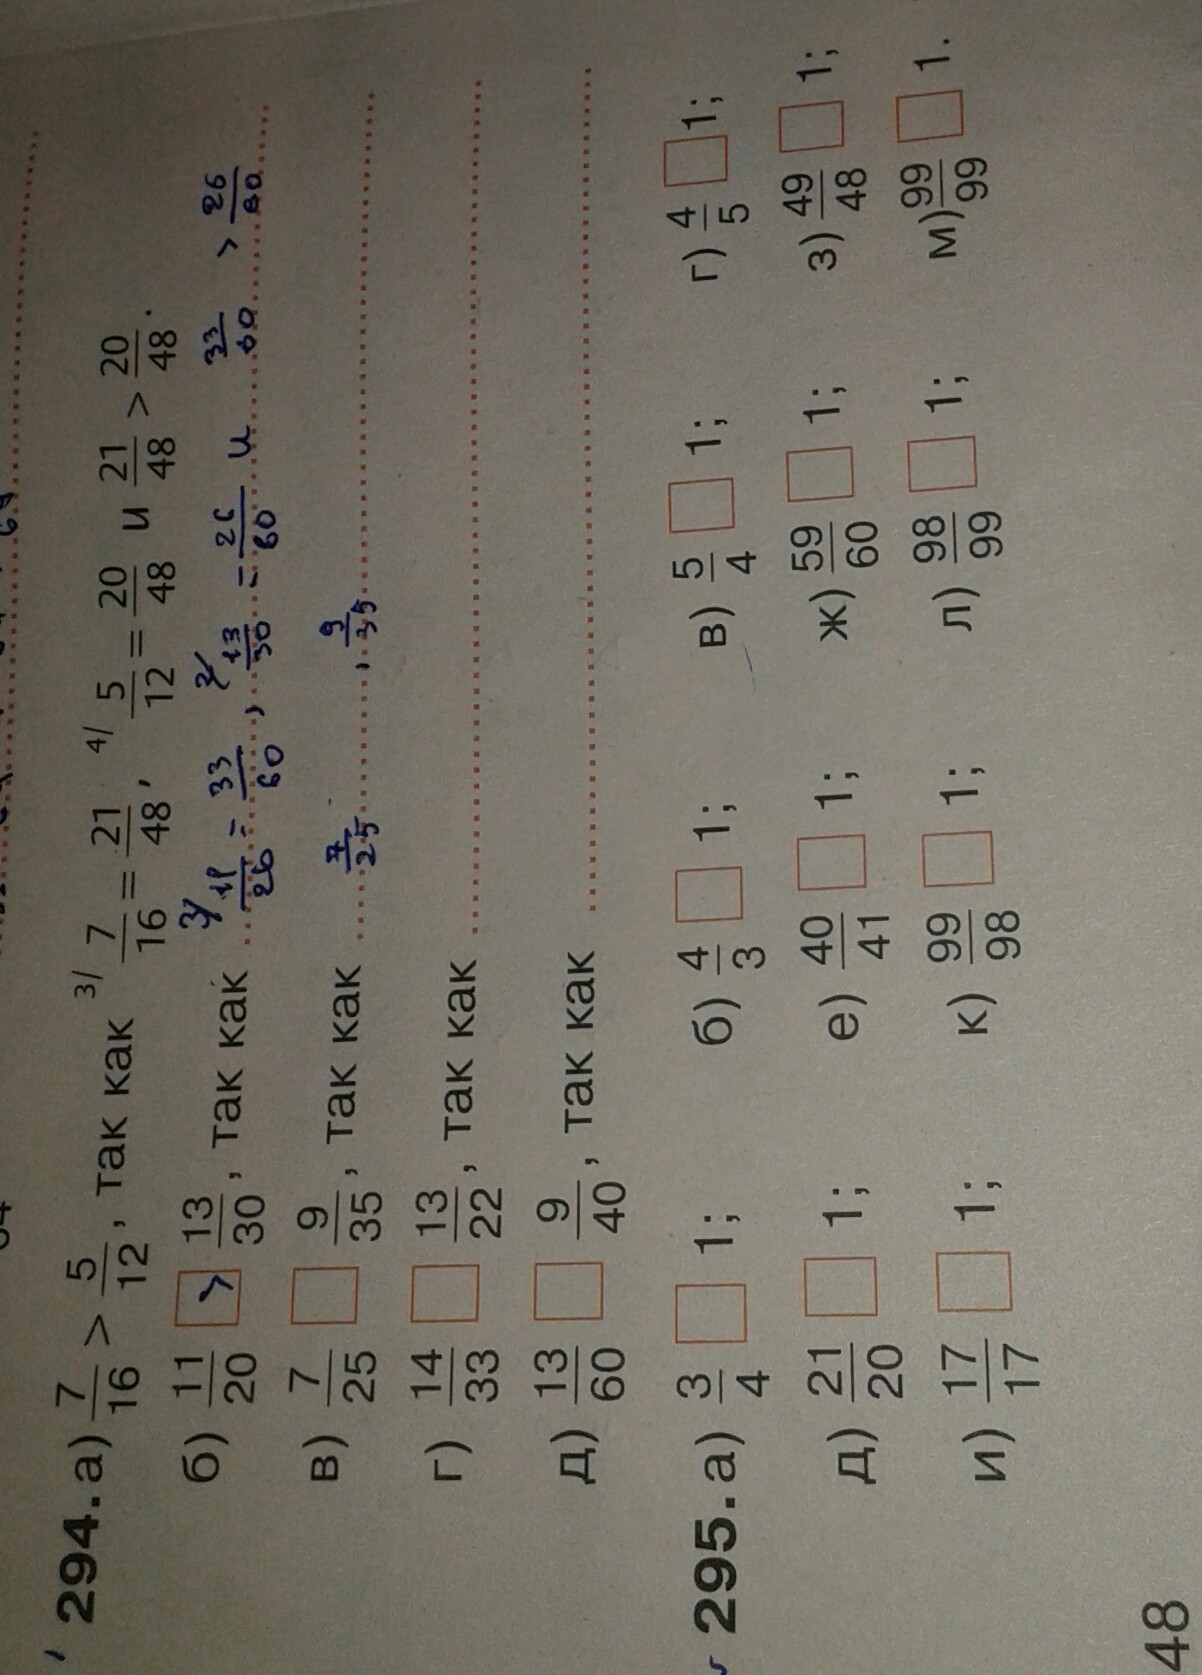 294. а) 7/16 > 5/12, так как 3/ 7/16 = 21/48, 4/ 5/12 = 20/48 и 21/48 > 20/48.
б) 11/20 > 13/30, так как 3/ 11/20 = 33/60, 2/ 13/30 = 26/60 и 33/60 > 26/60
в) 7/25 □ 9/35, так как 7/25, 9/35
г) 14/33 □ 13/22, так как
д) 13/60 □ 9/40, так как
295. а) 3/4 □ 1; б) 4/3 □ 1; в) 5/4 □ 1; г) 4/5 □ 1;
д) 21/20 □ 1; е) 40/41 □ 1; ж) 59/60 □ 1; з) 49/48 □ 1;
и) 17/17 □ 1; к) 99/98 □ 1; л) 98/99 □ 1; м) 99/99 □ 1.
48